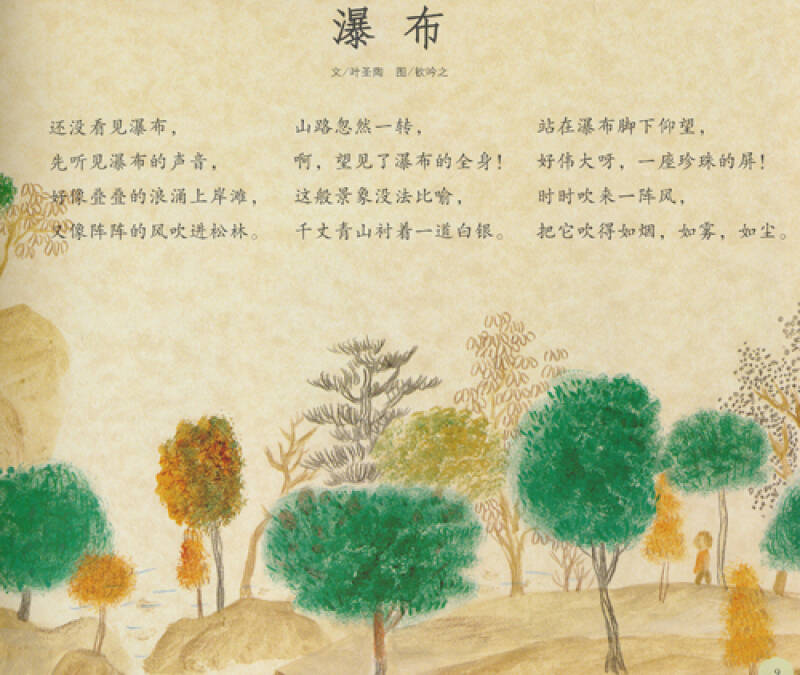 瀑布
文/叶圣陶 图/钦吟之
还没看见瀑布，
先听见瀑布的声音，
好像叠叠的浪涌上岸滩，
又像阵阵的风吹进松林。
山路忽然一转，
啊，望见了瀑布的全身！
这般景象没法比喻，
千丈青山衬着一道白银。
站在瀑布脚下仰望，
好伟大呀，一座珍珠的屏！
时时吹来一阵风，
把它吹得如烟，如雾，如尘。
9